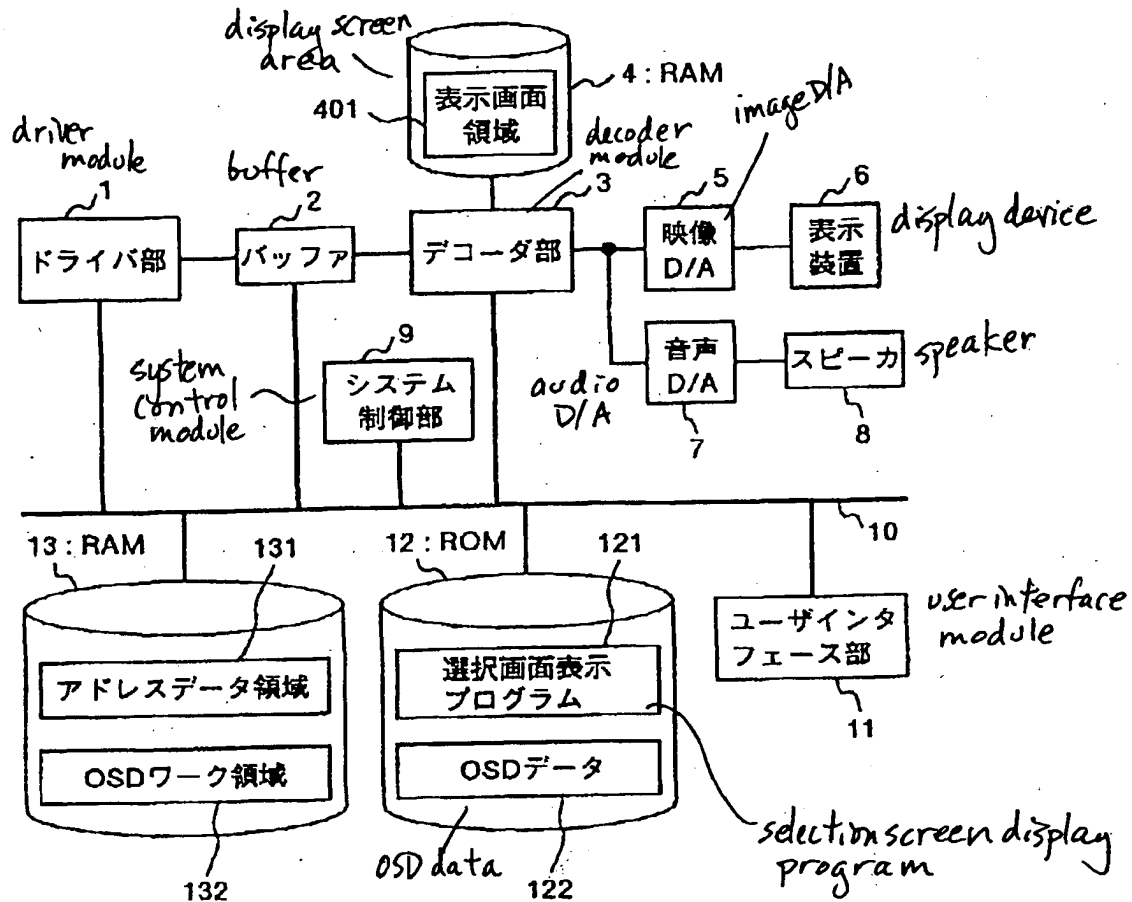 display screen
area
4 : RAM
表示画面
領域
401
image D/A
driver
module
1
ドライバ部
buffer
2
バッファ
decoder
module
3
デコーダ部
5
映像
D/A
6
表示
装置
display device
system
control
module
9
システム
制御部
audio
D/A
音声
D/A
7
スピーカ
speaker
8
10
13 : RAM
131
アドレスデータ領域
OSDワーク領域
132
12 : ROM
121
選択画面表示
プログラム
OSDデータ
OSD data
122
ユーザインタ
フェース部
11
user interface
module
selection screen display
program